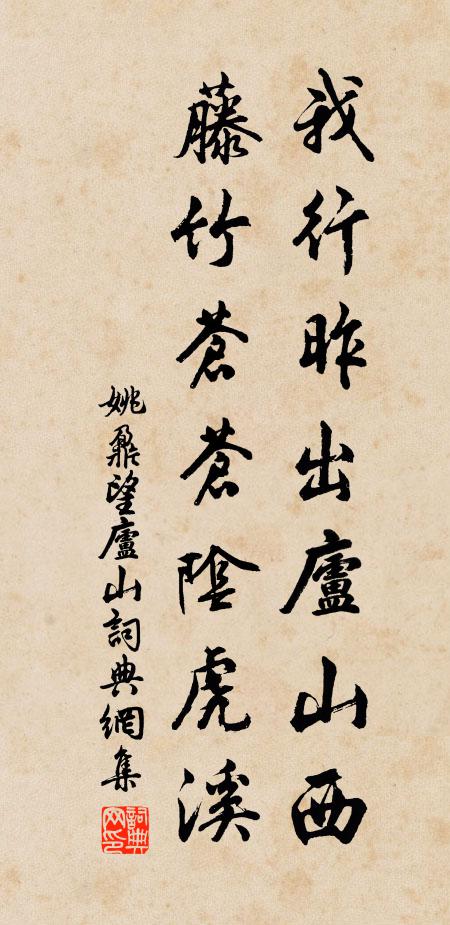 我行昨出廬山西
藤竹蒼蒼陰虎溪
姚鼐望廬山詞典網集
詞典網印